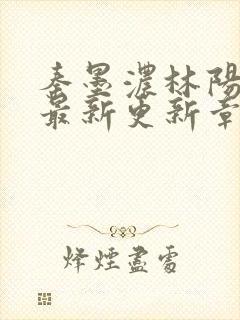 秦墨濃林陽
最新更新章
烽煙盡處